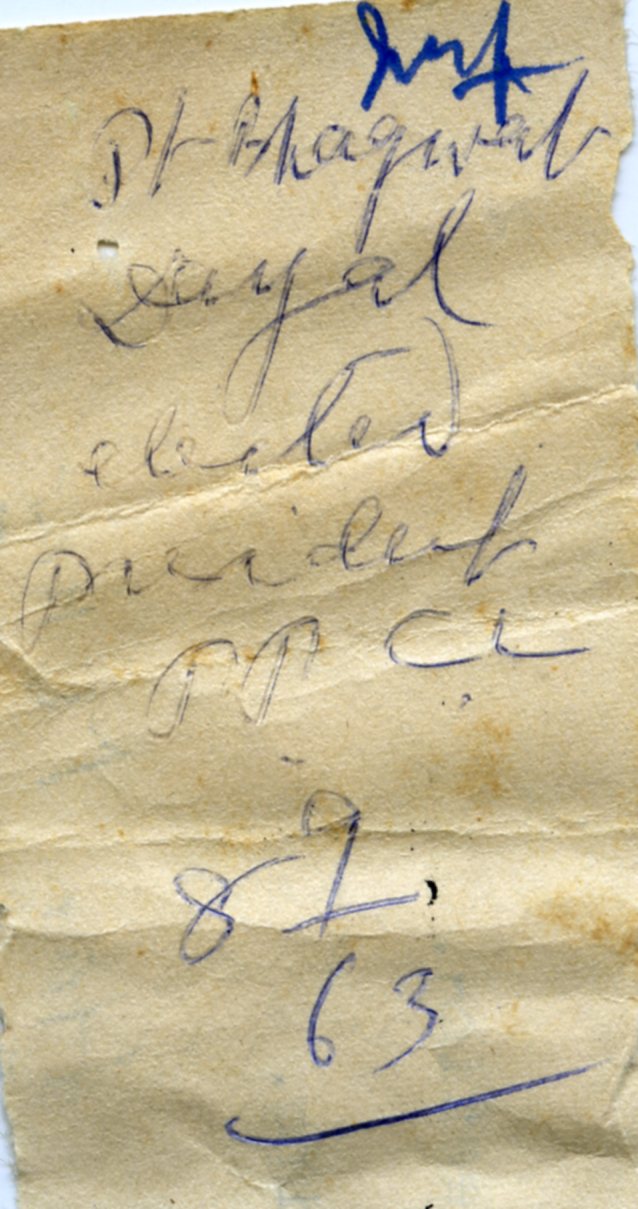 Pt Bhagwat
Dayal
elected
president
PPCC
8/9
63